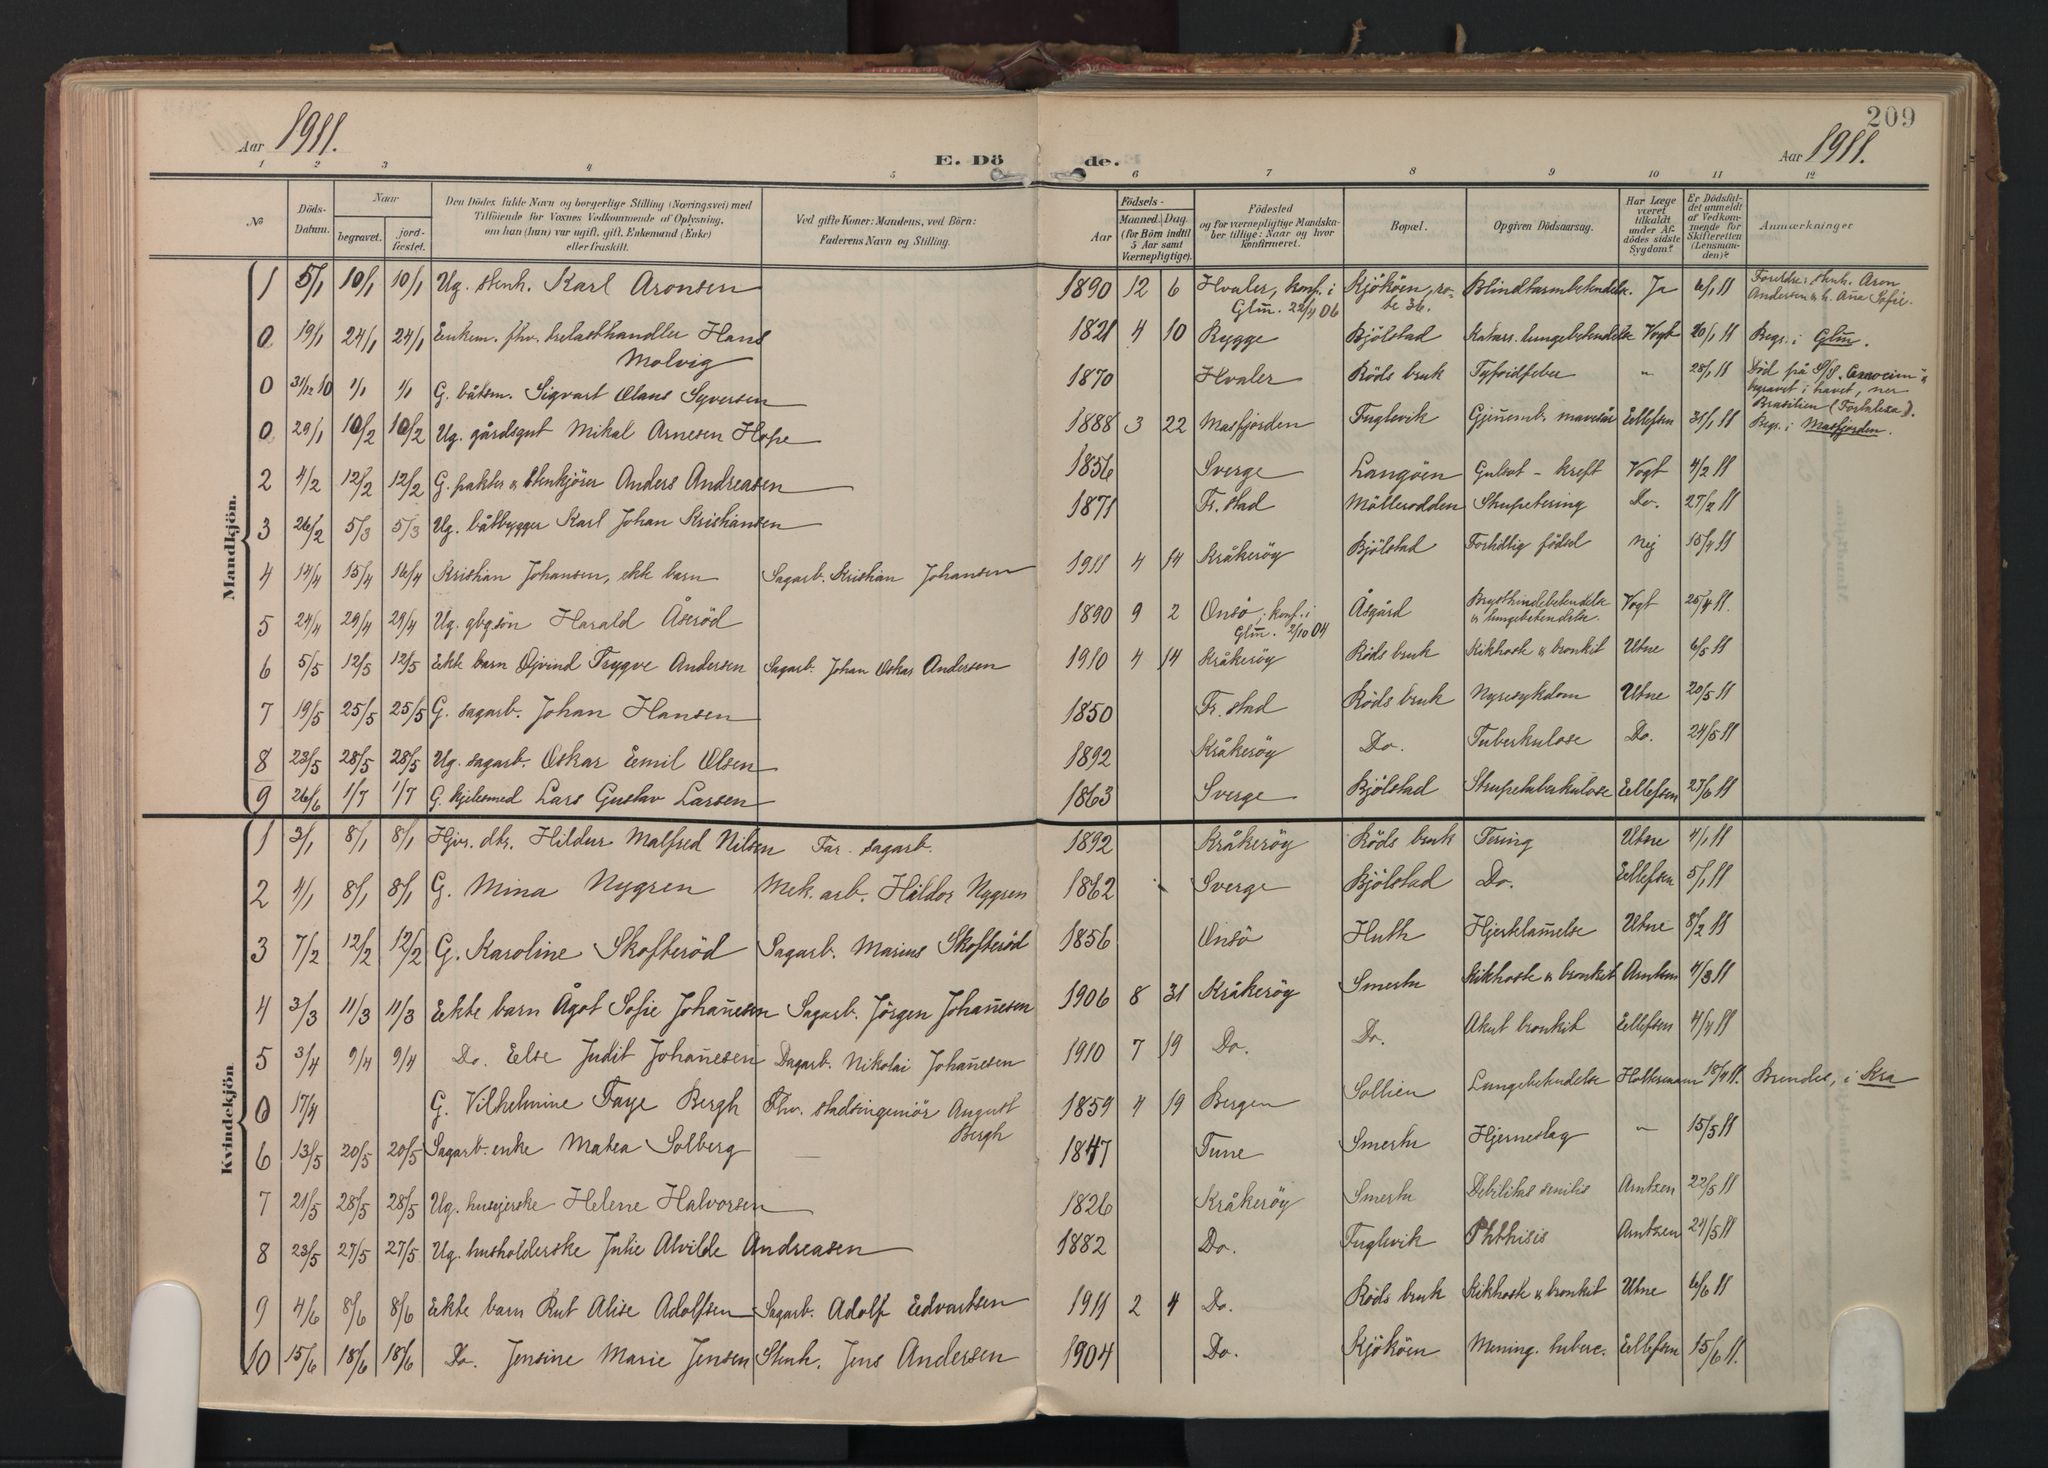 209
Aar 1911. E. Dö de. Aar 1911.
1 2 3 4 5 6 7 8 9 10 11 12
No Döds-Datum. Naar begravet. jordfæstet. Den Dödes fulde Navn og borgerlige Stilling (Næringsvei) med Tilföiende for Voxnes Vedkommende af Oplysning, om han (hun) var ugift, gift, Enkemand (Enke) eller fraskilt. Ved gifte Koner: Mandens, ved Börn: Faderens Navn og Stilling. Födsels- Aar Maaned. Dag. (for Börn indtil 5 Aar samt Værnepligtige). Födested og for værnepligtige Mandskaber tillige: Naar og hvor konfirmeret. Bopæl. Opgiven Dödsaarsag. Har Læge været tilkaldt under Afdödes sidste Sygdom? Er Dödsfaldet anmeldt af Vedkommende for Skifteretten (Lensmanden)? Anmærkninger
Mandkjön.
1 5/1 10/1 10/1 Ug. stenh. Karl Aronsen 1890 12 6 Hvaler, konf. i Glm̄. 22/4 06 Kjököen, rode 36. Blindtarmbetendelse. Ja 6/1 11 Foreldre: stenh. Aron Andersen & h. Ana Sofie.
0 19/1 24/1 24/1 Enkem. fhv. trelasthandler Hans Molvig 1821 4 10 Rygge Bjölstad Katarr. lungebetendelse Vogt 20/1 11 Begr. i Glm̄.
0 31/12 10 1/1 1/1 G. båtsm. Sigvart Olaus Syversen 1870 Hvaler Röds bruk Tyfoidfeber " 28/1 11 Död på S/S. begravet i havet, ner Brasilien (Fortalexa).
0 29/1 10/2 10/2 Ug. gårdsgut Mikal Arnesen Hope 1888 3 22 Masfjorden Fuglevik Gjen̄emb. mavesår Eellefsen 31/1 11 Begr. i Masfjorden.
2 4/2 12/2 12/2 G. pakter & stenkjörer Anders Andreasen 1856 Sverge Langöen Gulsot - kreft Vogt 4/2 11
3 26/2 5/3 5/3 Ug. båtbygger Karl Johan Kristiansen 1871 Fr. stad Mölleodden Strupetering Do. 27/2 11
4 14/4 15/4 16/4 Kristian Johansen, ekt barn Sagarb. Kristian Johansen 1911 4 14 Kråkeröy Bjölstad Fortidlig födsel Nej 15/4 11
5 24/4 29/4 29/4 Ug. gbg.sön Harald Åseröd 1890 9 2 Onsö; konf. i Glm̄. 2/10 04 Åsgård Brysthindebetendelse & lungebetendelse. Vogt 25/4 11.
6 5/5 12/5 12/5 Ekte barn Øjvind Trygve Andersen Sagarb. Johan Oskar Andersen 1910 4 14 Kråkeröy Röds bruk Kikhoste & bronkit Utne 6/5 11
7 19/5 25/5 25/5 G. sagarb. Johan Hansen 1850 Fr. stad Röds bruk Nyresykdom Utne 20/5 11
8 23/5 28/5 28/5 Ug. sagarb. Oskar Eemil Olsen 1892 Kråkeröy Do. Tuberkulose Do. 24/5 11
9 26/6 1/7 1/7 G. kjelesmed Lars Gustav Larsen 1863 Sverge Bjölstad Strupetuberkulose Eellefsen 27/6 11
Kvindekjön
1 3/1 8/1 8/1 Hjvr. dtr. Hildur Malfred Nilsen Far. sagarb. 1892 Kråkeröy Röds bruk Tering Utne 4/1 11
2 4/1 8/1 8/1 G. Mina Nygren Mek. arb. Hildor Nygren 1862 Sverge Bjölstad Do. Eellefsen 5/1 11
3 7/2 12/2 12/2 G. Karoline Skofteröd Sagarb. Marius Skofteröd 1856 Onsö Huth Hjertelam̄else Utne 8/2 11
4 3/3 11/3 11/3 Eekte barn Ågot Sofie Johan̄esen Sagarb. Jörgen Johan̄esen 1906 8 31 Kråkeröy Smertu Kikhoste & bronkit Arntzen 4/3 11
5 3/4 9/4 9/4 Do. Eelse Judit Johan̄esen Dagarb. Nikolai Johan̄esen 1910 7 19 Do. Do. Akut bronkit Eellefsen 4/4 11
0 17/4 G. Vilhelmine Faye Bergh Fhv. stadsingeniör August Bergh 1859 4 19 Bergen Sollien Lungebetendelse Holtermann 18/4 11. Brendes, i Kra
6 13/5 20/5 20/5 Sagarb. enke Matea Solberg — 1847 Tune Smertu Hjerneslag " 15/5 11
7 21/5 28/5 28/5 Ug. husjerske Helene Halvorsen 1826 Kråkeröy Smertu Debilitas senilis Arntzen 22/5 11
8 23/5 27/5 27/5 Ug. husholderske Julie Alvilde Andreasen 1882 Do. Fuglevik Phthisis Arntzen 24/5 11
9 4/6 8/6 8/6 Eekte barn Rut Alise Adolfsen Sagarb. Adolf Eedvartsen 1911 2 4 Do. Röds bruk Kikhoste & bronkit Utne 6/6 11
10 15/6 18/6 18/6 Do. Jensine Marie Jensen Stenh. Jens Andersen 1904 Do. Kjököen Mening. tuberc. Eellefsen 15/6 11.